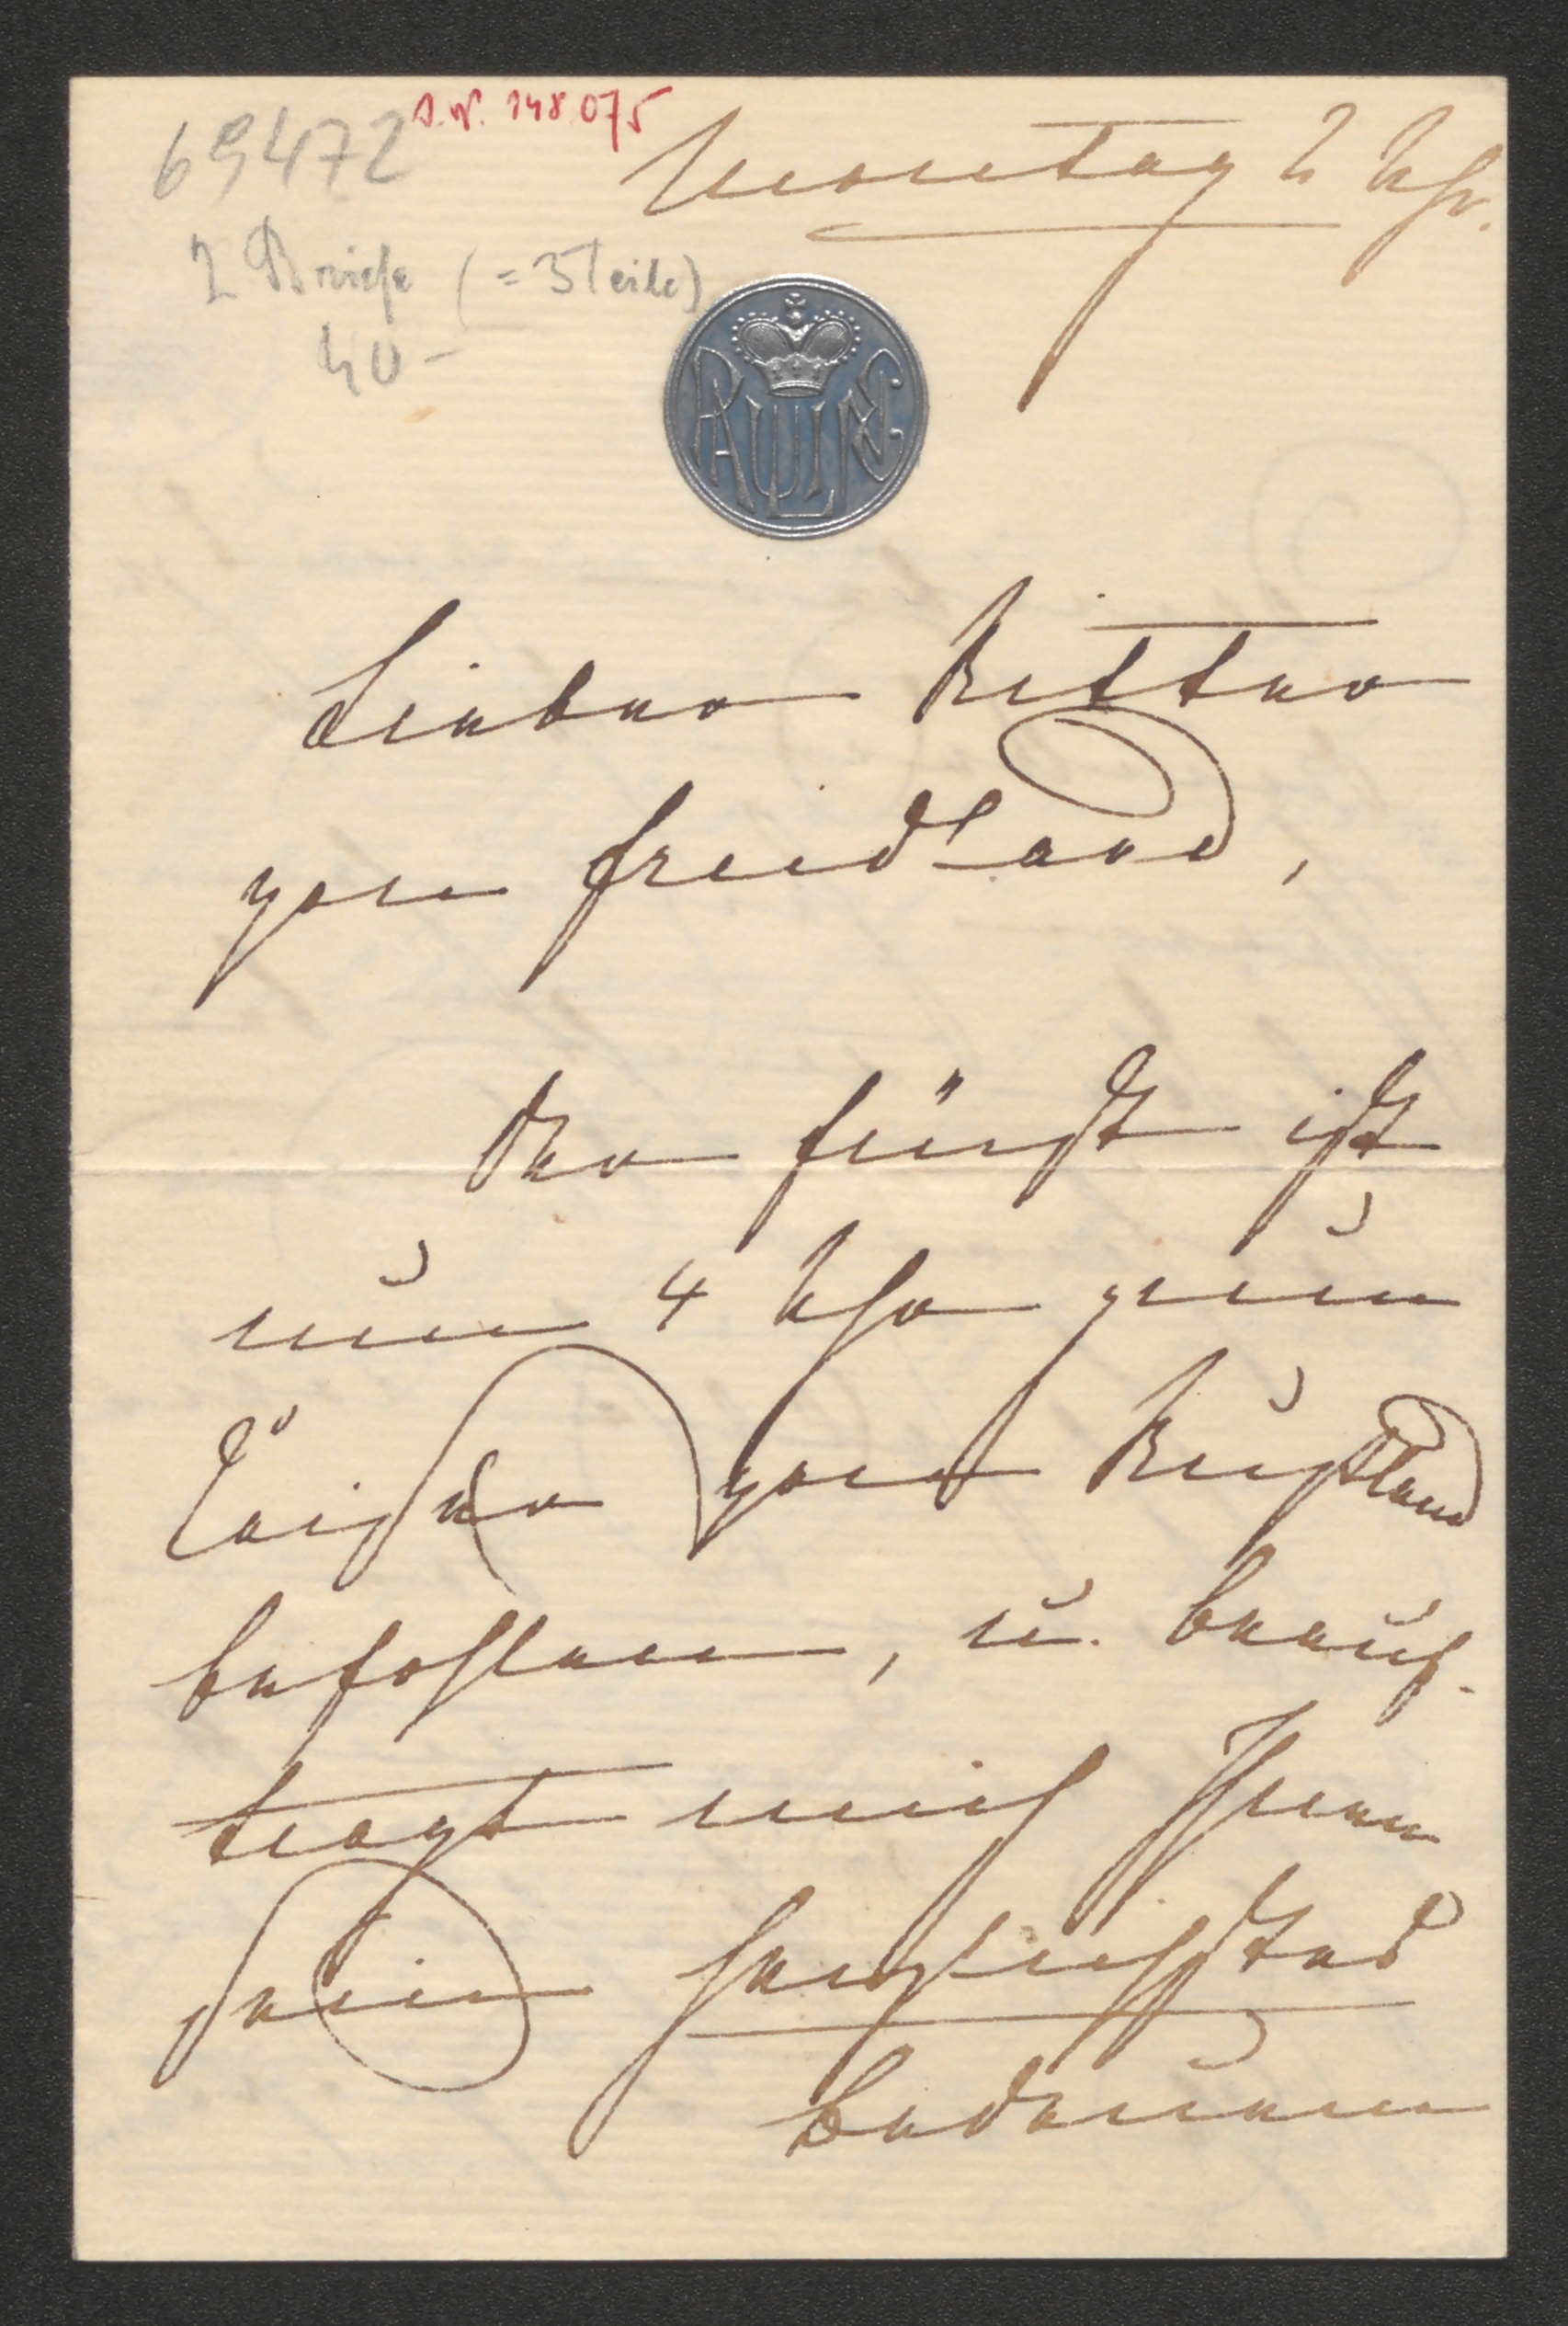 69472
J. N. 148.075
Montag 2 Uhr.
2 Briefe (= 3 Teile)
40 -
PAULINE
Lieber Ritter
von Friedland,
Der Fürst ist
nun 4 Uhr zum
Kaiser von Rußland
befohlen, u. beauf-
tragt mich Ihnen
sein herzlichstes
Bedauern